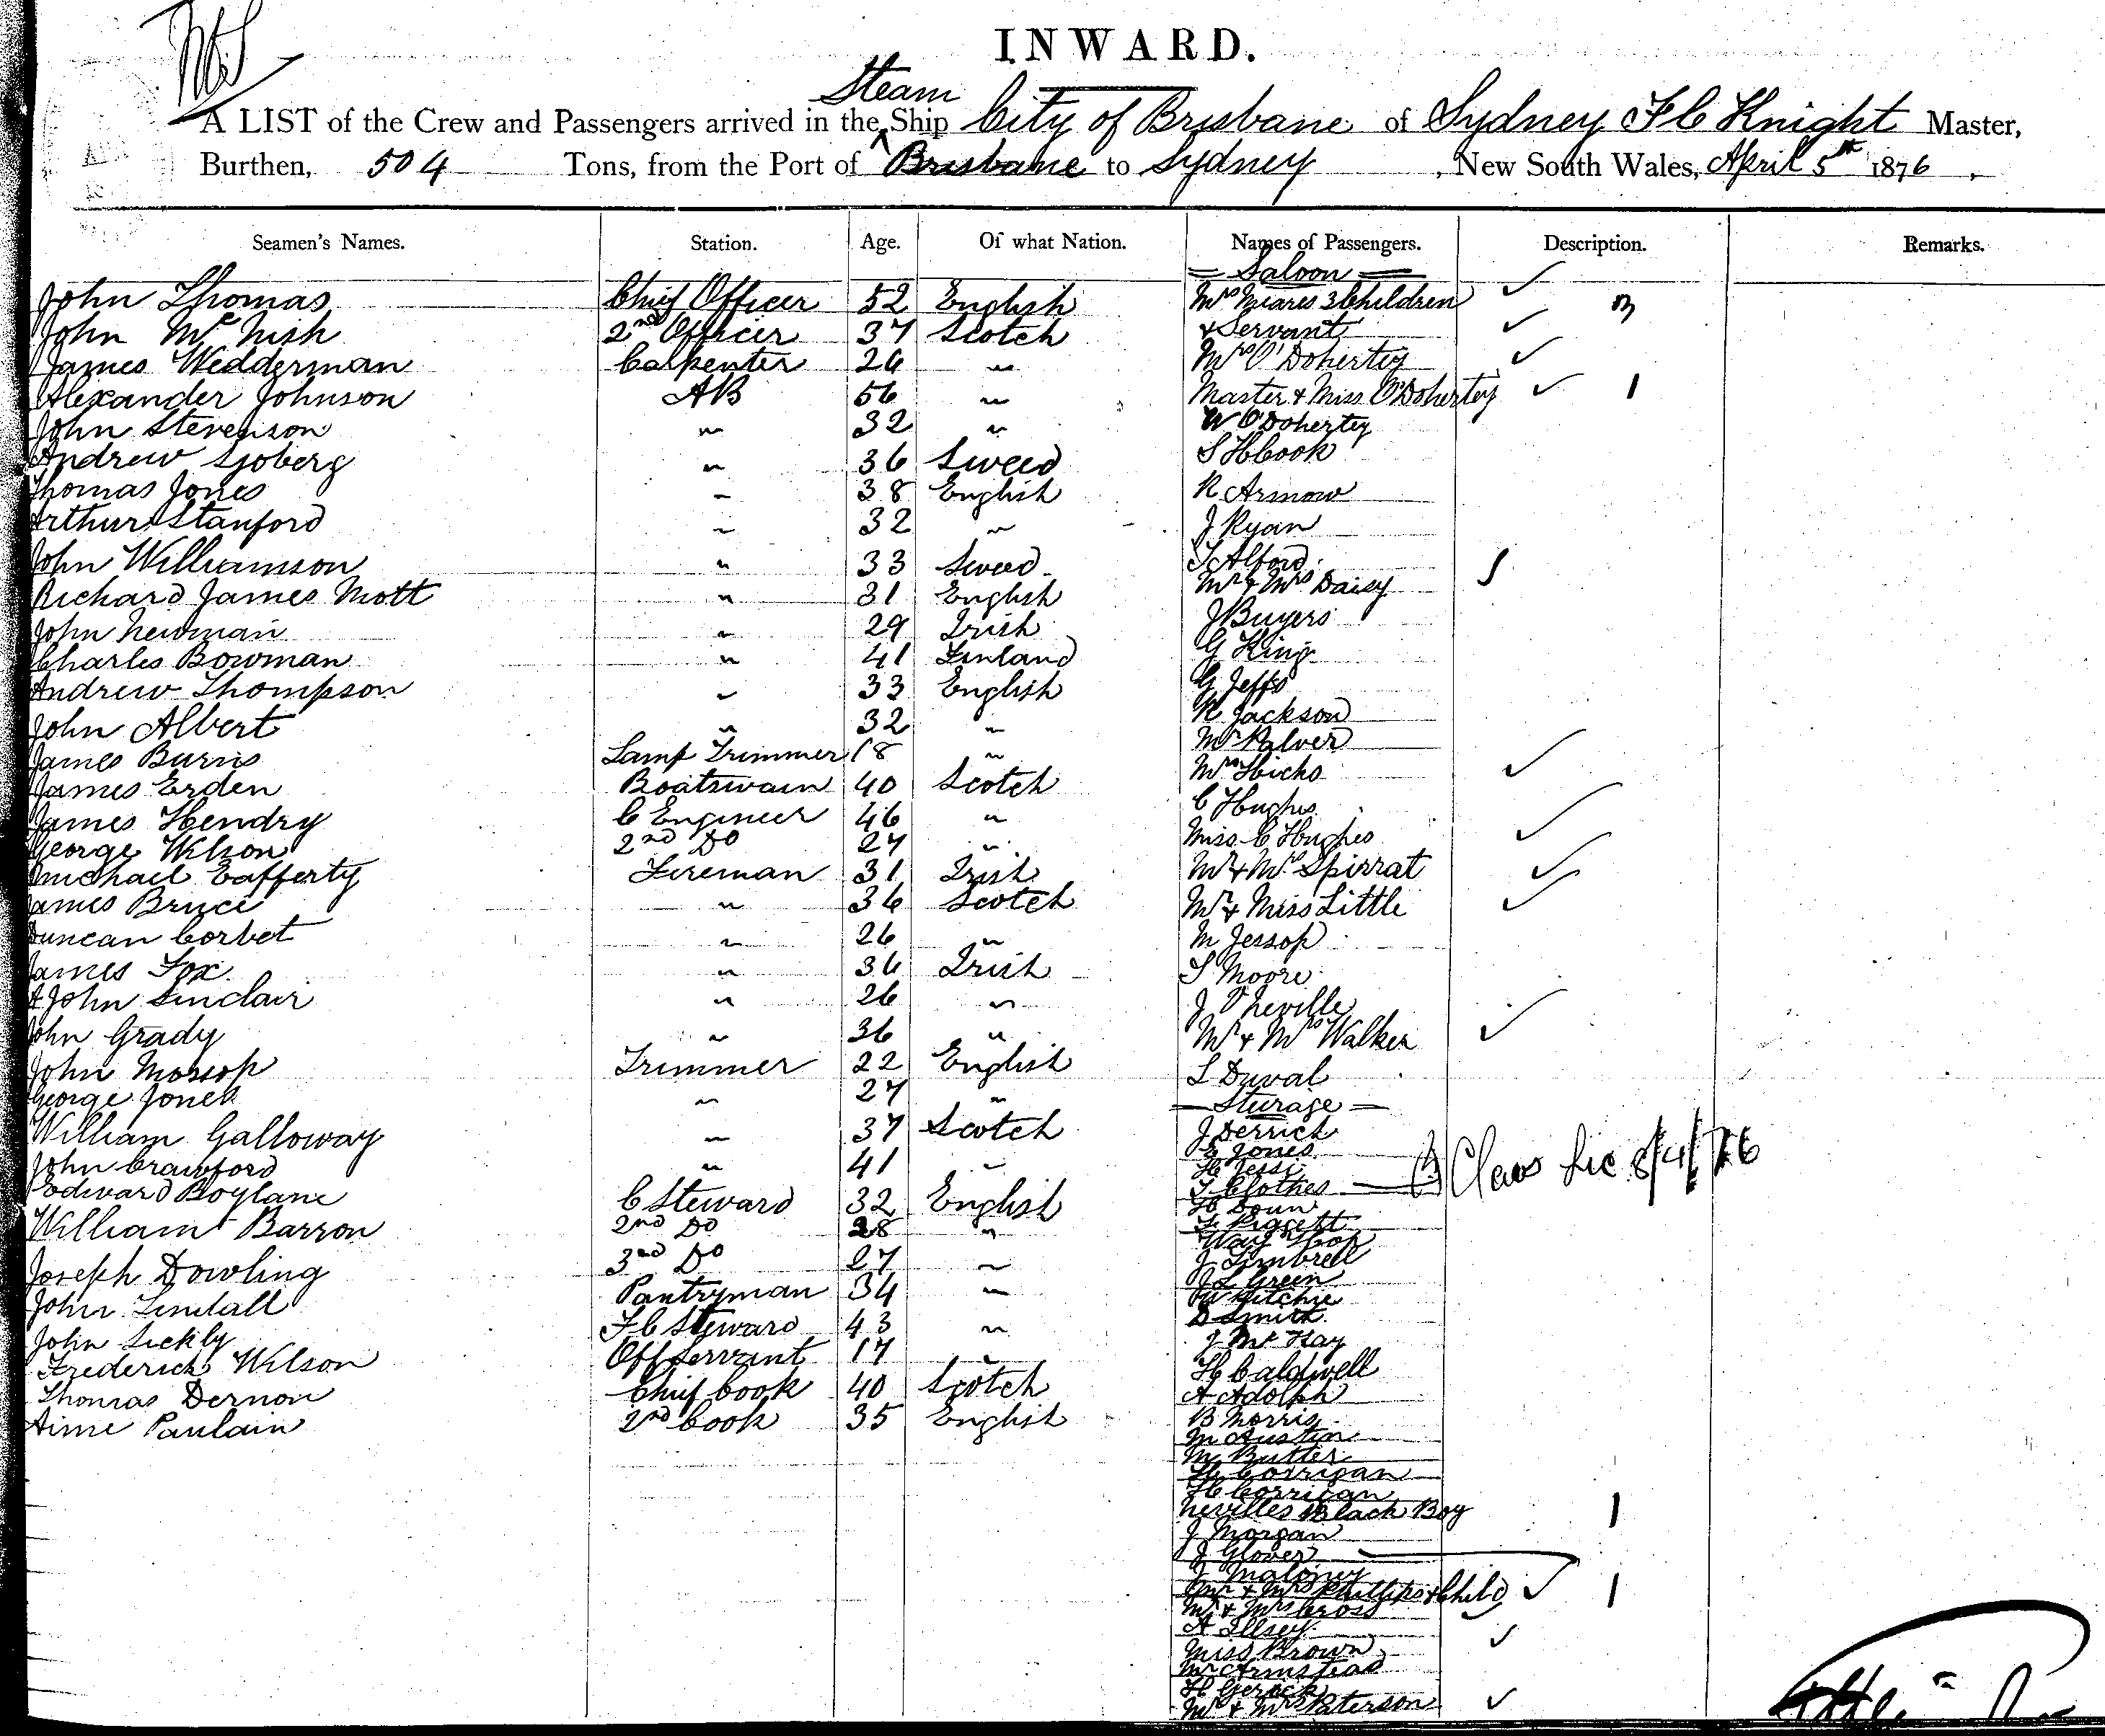 INWARD.
Steam
A LIST of the Crew and Passengers arrived in the Ship City of Brisbane of Sydney F C Knight Master,
Burthen, 504 Tons, from the Port of Brisbane to Sydney, New South Wales, April 5th 1876.
Seamen's Names. Station. Age. Of what Nation. Names of Passengers. Description. Remarks.
= Saloon =
John Thomas Chief Officer 52 English Mrs Miares 3 Children 3
John McNish 2nd Officer 37 Scotch & Servant
James Wedderman Carpenter 26 " Mrs O'Doherty
Alexander Johnson AB 56 " Master & Miss O'Doherty 1
John Stevenson " 32 " W O'Doherty
Andrew Sjoberg " 36 Sweed S H Cook
Thomas Jones " 38 English R Armow
Arthur Stanford " 32 " J Ryan
John Williamson " 33 Sweed T Alford
Richard James Mott " 31 English Mr & Mrs Daisy
John Newman " 29 Irish J Buyers
Charles Bowman " 41 Finland G King
Andrew Thompson " 33 English G Jeffs
John Albert " 32 " R Jackson
James Burns Lamp Trimmer 18 " Mr Palver
James Erden Boatswain 40 Scotch Mrs Hicks
James Hendry C Engineer 46 " C Hughes
George Wilson 2nd Do 27 " Miss C Hughes
Michael Cafferty Fireman 31 Irish Mr & Mrs Spirrat
James Bruce " 36 Scotch Mr & Miss Little
Duncan Corbet " 26 " M Jessop
James Fox " 36 Irish S Moore
A John Sinclair " 26 " J Neville
John Grady " 36 " Mr & Mrs Walker
John Mossop Trimmer 22 English L Duval
George Jones " 27 " — Sturage —
William Galloway " 37 Scotch J Derrick
E Jones
John Crawford " 41 " H Jesse
Edward Boylane C Steward 32 English T Clothes
H Doun
William Barron 2nd Do 28 " F Piggett
Way Hop
Joseph Dowling 3rd Do 27 " J Timbrell
John Tindall Pantryman 34 " J L Green
W Ritchie
John Lickly F C Steward 43 " D Smith
J McKay
Frederick Wilson Off Servant 17 " H Caldwell
Thomas Dernon Chief Cook 40 Scotch A Adolph
Aime Paulain 2nd Cook 35 English B Morris
M Austin
M Butler
H Corrigan
H Corrigan
Nevilles Black Boy 1
J Morgan
J Glover
J Maloney
Mr & Mrs Phillips & Child 1
Mr & Mrs Cross
A Illsey
Miss Brown
Mr Armstead
H Gerick
Mr & Mrs Paterson